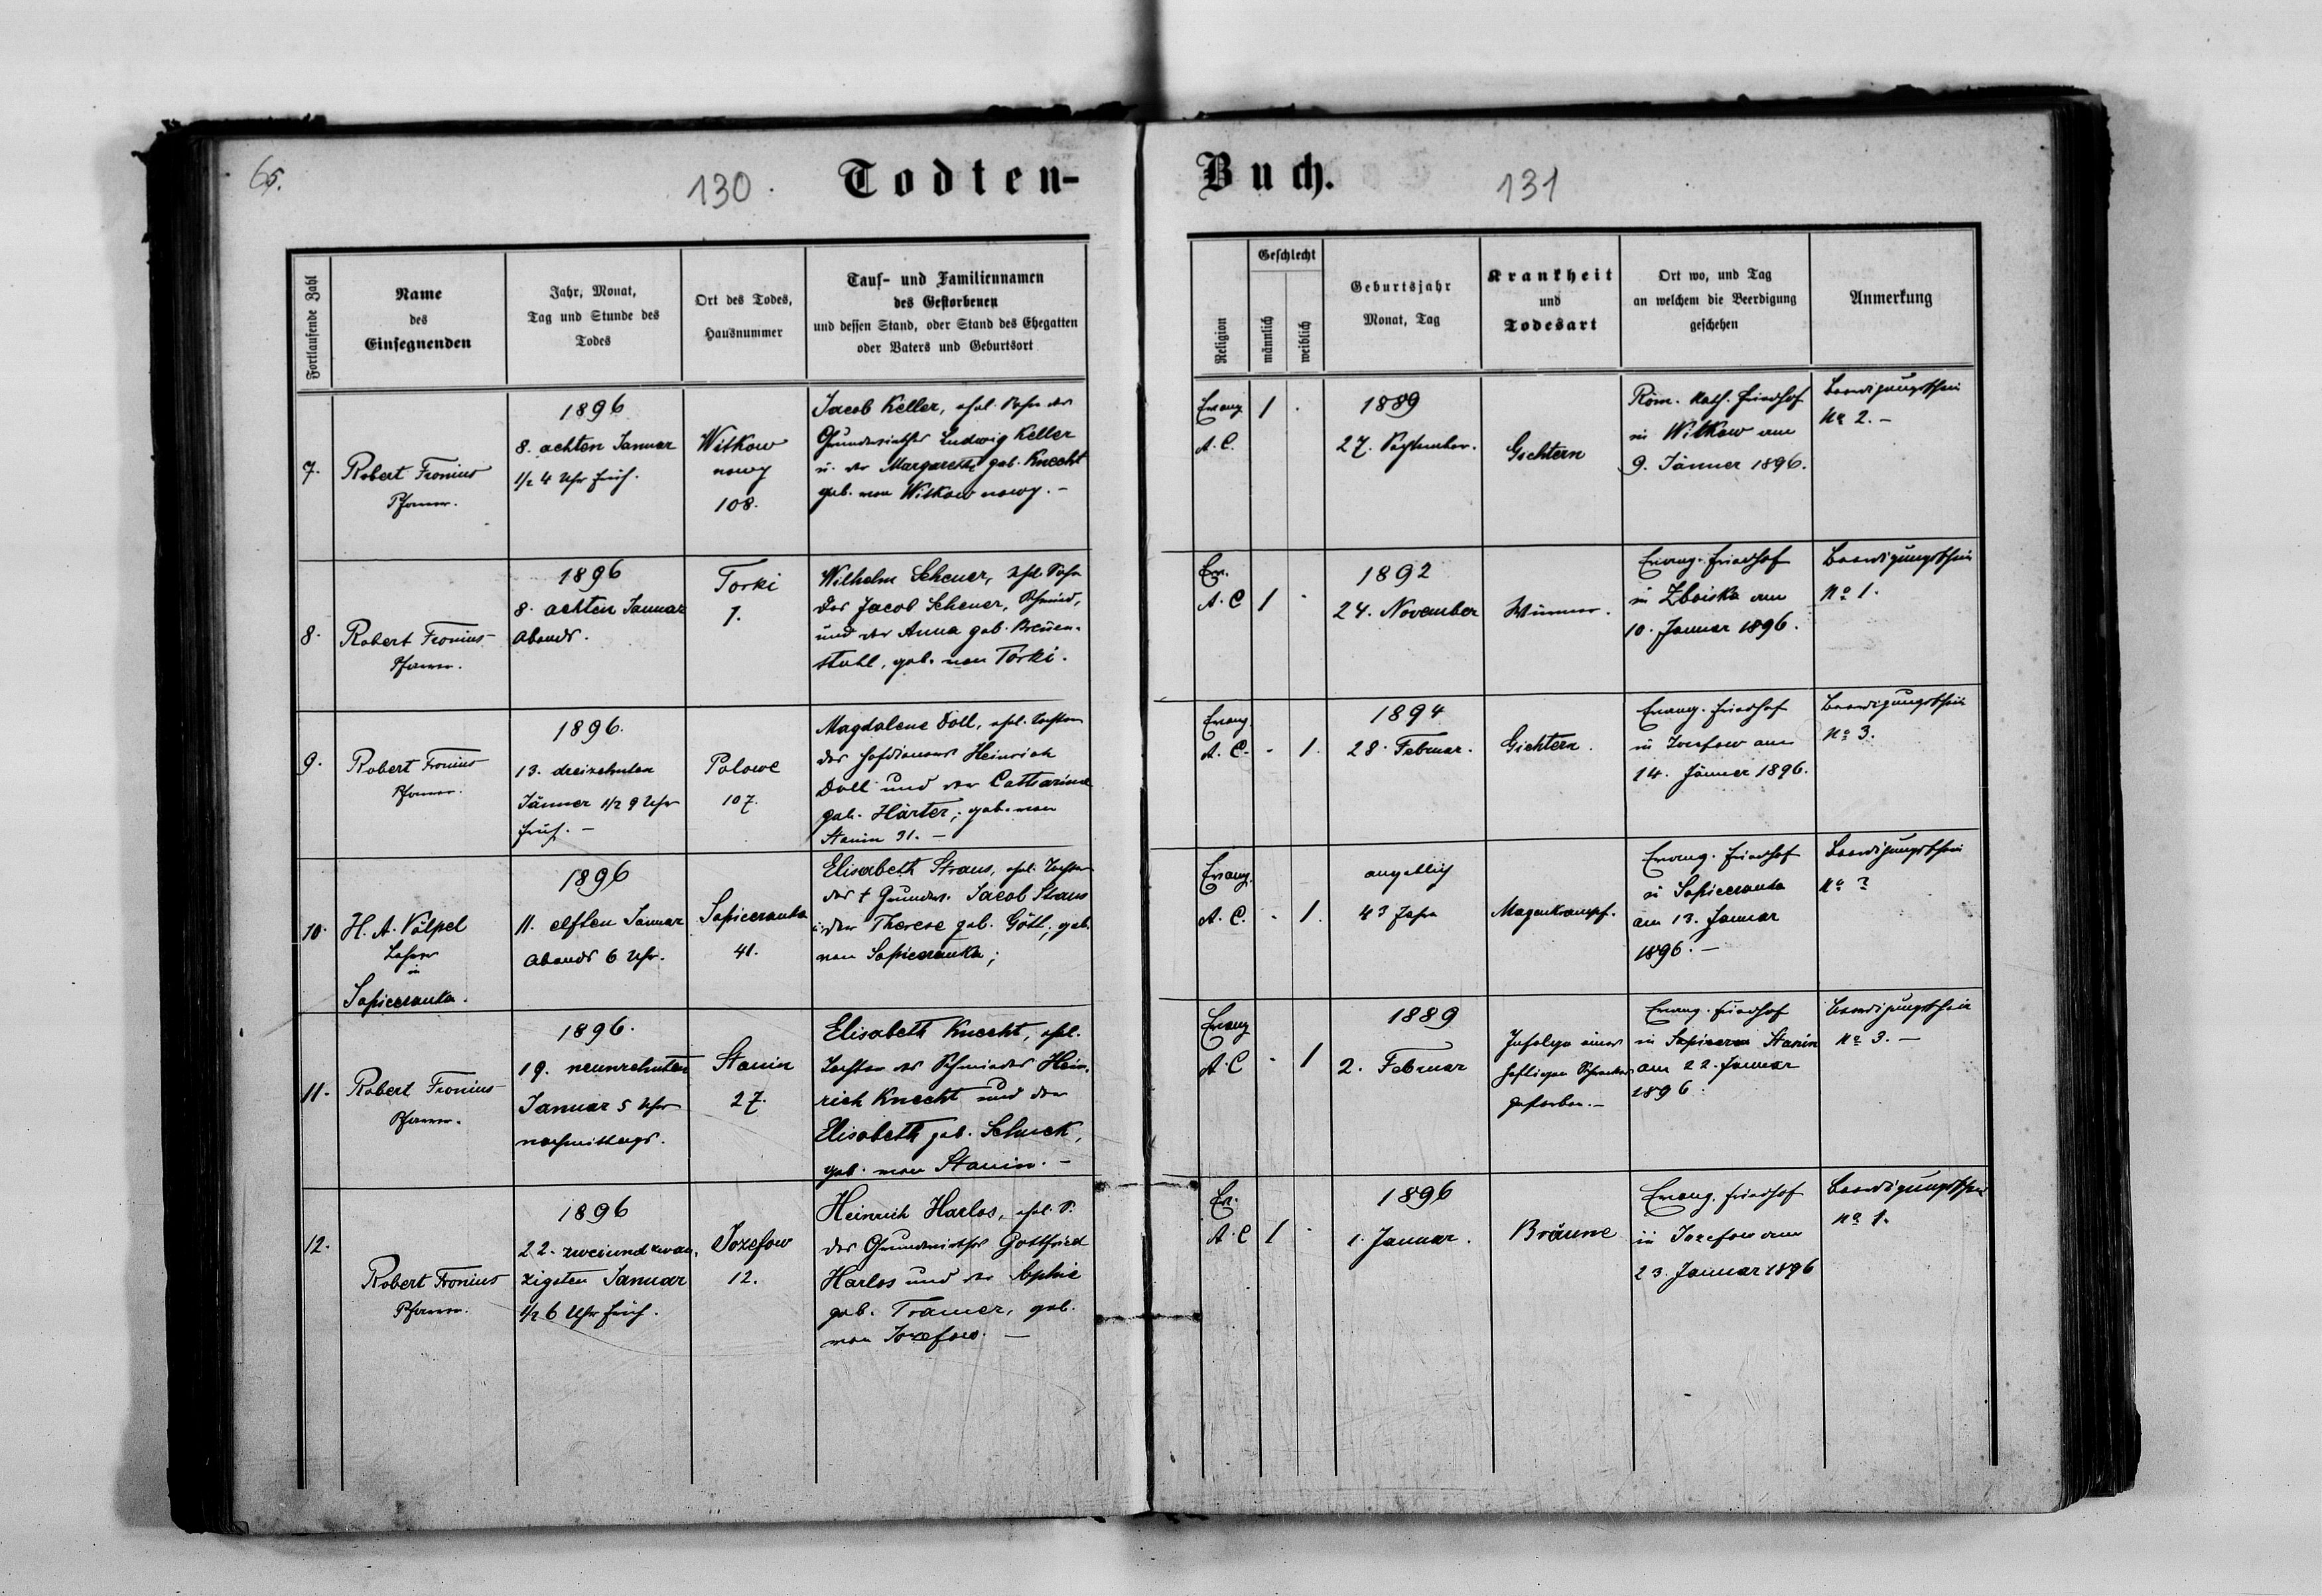 65.
130.
Todten-
Buch.
131
Fortlaufende Zahl
Name
des
Einsegnenden
Jahr, Monat,
Tag und Stunde des
Todes
Ort des Todes,
Hausnummer
Tauf- und Familiennamen
des Gestorbenen
und dessen Stand, oder Stand des Ehegatten
oder Vaters und Geburtsort
Religion
Geschlecht
männlich
weiblich
Geburtsjahr
Monat, Tag
Krankheit
und
Todesart
Ort wo, und Tag
an welchem die Beerdigung
geschehen
Anmerkung
7.
Robert Fronius
Pfarrer.
1896
8. achten Januar
1/2 4 Uhr früh.
Witkow
nowy
108.
Jacob Keller, ehel. Sohn des
Grundwirthes Ludwig Keller
u. der Margarethe geb. Knecht
geb. von Witkow nowy. –
Evang.
A. C.
1 .
1889
27. September.
Gichtern
Röm. kath. Friedhof
in Witkow am
9. Jänner 1896.
Beerdigungsschein
No 2. –
8.
Robert Fronius
Pfarrer.
1896
8. achten Januar
Abends.
Torki
7.
Wilhelm Scheuer, ehel. Sohn
des Jacob Scheuer, Schmied,
und der Anna geb. Breuen-
stuhl, geb. von Torki.
Ev.
A. C
1 .
1892
24. November
Würmer.
Evang. Friedhof
in Zboiska am
10. Januar 1896.
Beerdigungsschein
No 1.
9.
Robert Fronius
Pfarrer.
1896.
13. dreizehnten
Jänner 1/2 9 Uhr
früh. –
Polowe
107.
Magdalene Doll, ehel. Tochter
des Hofdieners Heinrich
Doll und der Catharina
geb. Härter; geb. von
Stanin 31. –
Evang.
A. C.
. 1.
1894
28. Februar.
Gichtern.
Evang. Friedhof
in Jozefow am
14. Jänner 1896.
Beerdigungsschein
No 3.
10.
H. A. Völpel
Lehrer
in
Sapiezanka.
1896
11. elften Januar
Abends 6 Uhr.
Sapiezanka
41.
Elisabeth Straus, ehel. Tochter
des † Grundw. Jacob Straus
u. der Therese geb. Gött; geb.
von Sapiezanka;
Evang.
A. C.
. 1.
angeblich
43 Jahre
Magenkrampf.
Evang. Friedhof
in Sapiezanka
am 13. Januar
1896. –
Beerdigungsschein
No ?
11.
Robert Fronius
Pfarrer.
1896.
19. neunzehnten
Januar 5 Uhr
nachmittags.
Stanin
27.
Elisabeth Knecht, ehel.
Tochter des Schmiedes Hein-
rich Knecht und der
Elisabeth geb. Schuck,
geb. von Stanin. –
Evang
A. C
. 1
1889
2. Februar
Infolge eines
heftigen
gestorben. –
Evang. Friedhof
in Stanin
am 22. Januar
1896.
Beerdigungsschein
No 3. –
12.
Robert Fronius
Pfarrer.
1896
22. zweiundzwan-
zigsten Januar
1/2 6 Uhr früh.
Jozefow
12.
Heinrich Harlos, ehel. S.
des Grundwirthes Gottfried
Harlos und der Sophie
geb. Tramer, geb.
von Jozefow. –
Ev.
A. C
1 .
1896
1. Januar.
Bräune
Evang. Friedhof
in Jozefow am
23. Januar 1896
Beerdigungsschein
No 1.